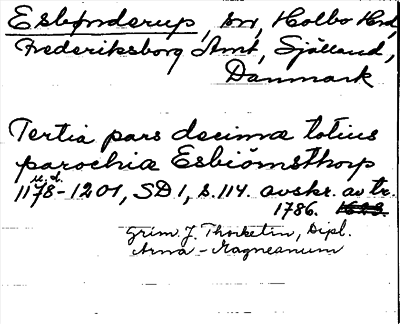 Esbønderup, sn, Holbo Hrd,
Frederiksborg Amt, Själland,
Danmark
Tertia pars decimæ totius
parochiæ Esbiömsthorp
u.d.
1178-1201, SD 1, s. 114. avskr. av tr.
1786. 1623.
Grim. J. Thorkelin, Dipl.
Arna-Magneanum